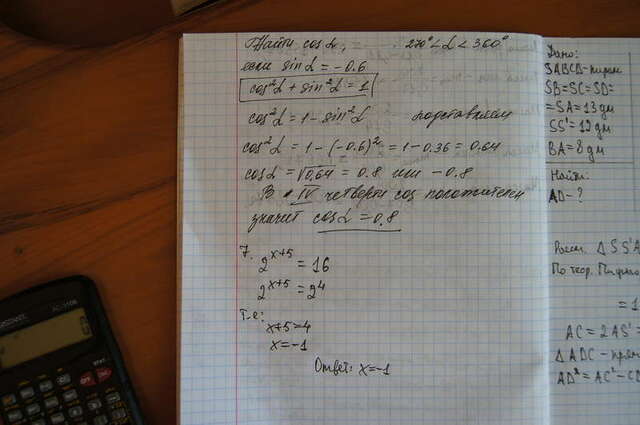 Найти cos α, 270° < α < 360°
если sin α = -0.6
cos²α + sin²α = 1
cos²α = 1 - sin²α подставляем
cos²α = 1 - (-0.6)² = 1 - 0.36 = 0.64
cos α = √0,64 = 0.8 или -0.8
В IV четверти cos положителен
значит cos α = 0.8
7. 2^(x+5) = 16
2^(x+5) = 2^4
т.е:
x+5=4
x=-1
Ответ: x=-1
Дано:
SABCD-пирам
SB=SC=SD=
=SA=13дм
SS'=12дм
BA=8дм
Найти:
AD-?
Рассм. △SS'A
По теор.
= 1
AC=2AS'=
△ADC-прям
AD²=AC²-CD